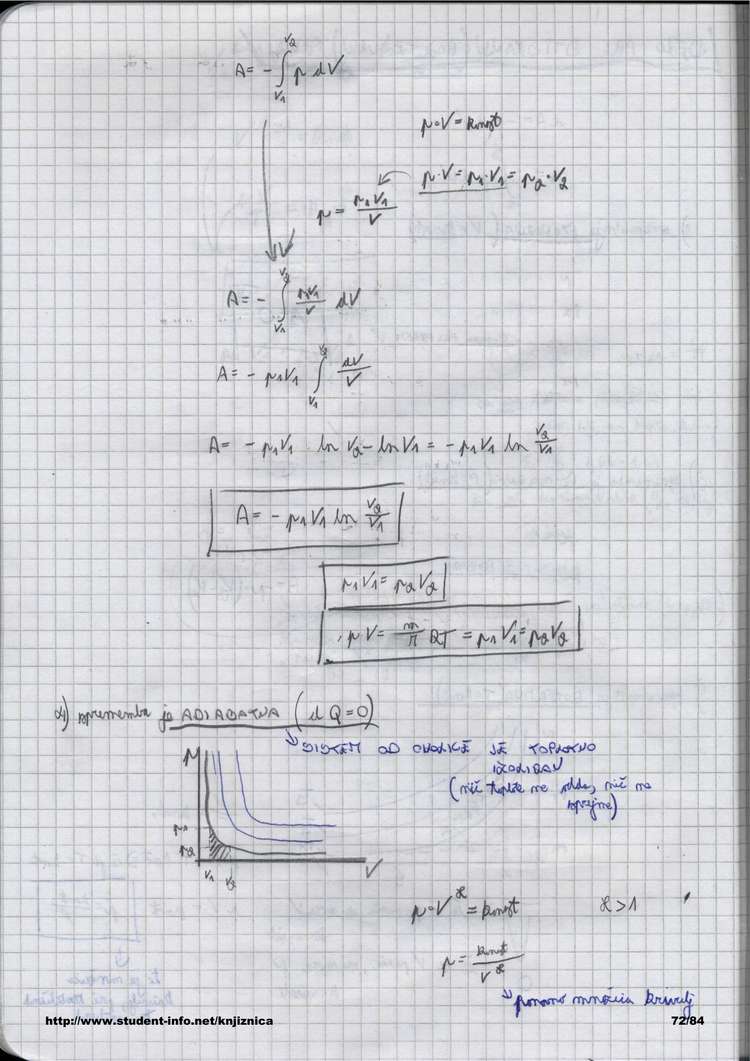 A = - ∫ p dV
V₂
V₁
p·V = konst
p·V = p₁·V₁ = p₂·V₂
p = p₁V₁/V
A = - ∫ p₁V₁/V dV
V₂
V₁
A = - p₁V₁ ∫ dV/V
V₂
V₁
A = - p₁V₁ ln V₂ - ln V₁ = - p₁V₁ ln V₂/V₁
A = - p₁V₁ ln V₂/V₁
p₁V₁ = p₂V₂
pV = m/M RT = p₁V₁ = p₂V₂
4) sprememba je ADIABATNA (dQ = 0)
SISTEM OD OKOLICE JE TOPLOTNO
IZOLIRAN
(nič toplote ne odda, nič ne
sprejme)
p
p₁
p₂
V₁ V₂ V
p·V^ϰ = konst ϰ > 1
p = konst/V^ϰ
ponovno množica krivulj
http://www.student-info.net/knjiznica 72/84